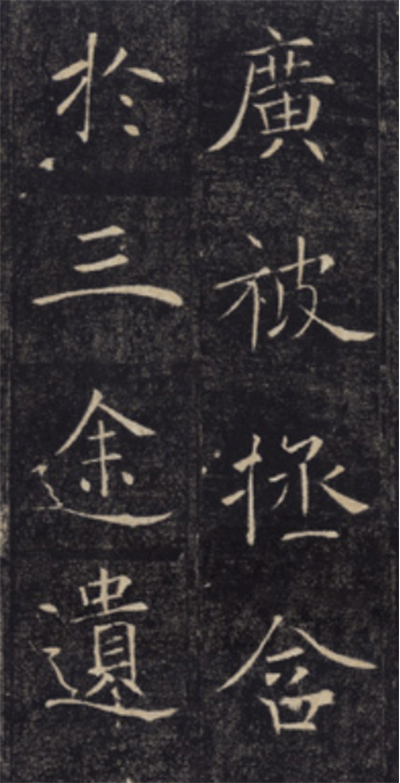 廣被拯含
於三途遺